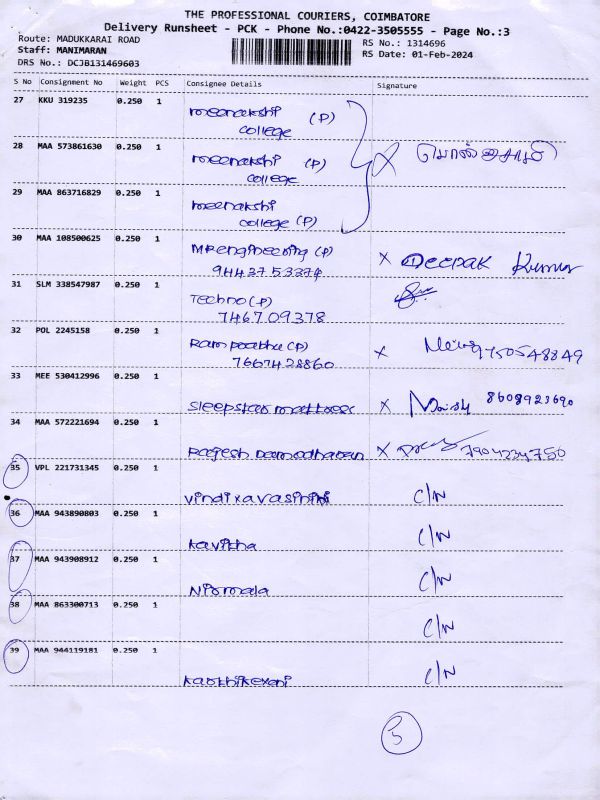 THE PROFESSIONAL COURIERS, COIMBATORE
Delivery Runsheet - PCK - Phone No.:0422-3505555 - Page No.:3
Route: MADUKKARAI ROAD
RS No.: 1314696
Staff: MANIMARAN
RS Date: 01-Feb-2024
DRS No.: DCJB131469603
S No Consignment No Weight PCS Consignee Details Signature
27 KKU 319235 0.250 1 meenakshi (P)
college
28 MAA 573861630 0.250 1 meenakshi (P) X
college
29 MAA 863716829 0.250 1 meenakshi
college (P)
30 MAA 108500625 0.250 1 MP engineering (P) X Deepak Kumar
31 SLM 338547987 0.250 1 Techno (P)
7467 09378
32 POL 2245158 0.250 1 Ram prabhu (P) X 9750548849
7667428860
33 MEE 530412996 0.250 1 Sleepstar mattress X 8608923690
34 MAA 572221694 0.250 1 Ragesh Damodharan X 7904234750
35 VPL 221731345 0.250 1 Vindixavasinini C/N
36 MAA 943890803 0.250 1 Kavitha C/N
37 MAA 943908912 0.250 1 Nirmala C/N
38 MAA 863300713 0.250 1 C/N
39 MAA 944119181 0.250 1 Karthikeyeni C/N
5